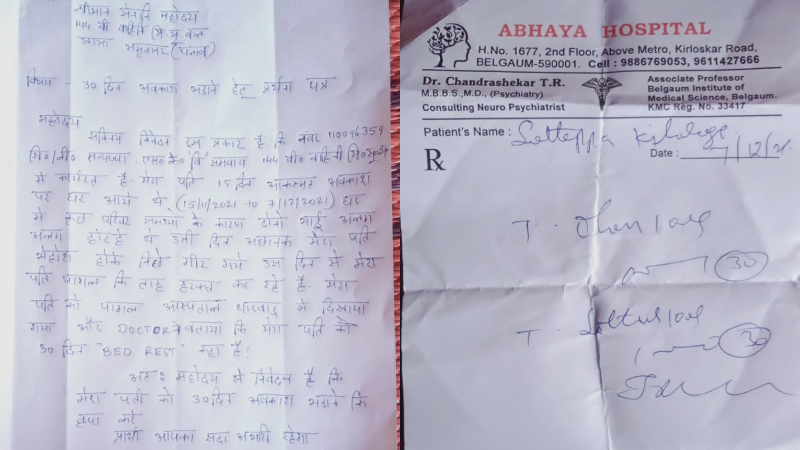 श्रीमान सेनानि महोदय
144 वी वाहिनी
खासा अमृतसर (पंजाब)
विषय - 30 दिन अवकाश बढाने हेतु प्रार्थना पत्र
महोदय
सविनय निवेदन इस प्रकार है कि नंबर 110096359
144 वी वाहिनी
मे कार्यरत है. मेरा पति 15 दिन आकस्मिक अवकाश
पर घर आये थे. (15/11/2021 to 7/12/2021) घर
मे कुछ परिवार समस्या के कारण दोनो भाई अलग
अलग होरहे थे उसी दिन अचानक मेरा पति
बेहोश होके निचे गीर गये उस दिन से मेरा
पति पागल कि तरह हरकत कर रहे है. मेरा
पति को पागल अस्पताल धारवाड मे दिखाया
गया और DOCTOR ने बताया कि मेरा पति को
30 दिन "BED REST" कहा है!
अतः महोदय से निवेदन है कि
मेरा पती को 30 दिन अवकाश बढाने कि
कृपा करे
प्रार्थी आपका सदा अभारी रहेगा
ABHAYA HOSPITAL
H.No. 1677, 2nd Floor, Above Metro, Kirloskar Road,
BELGAUM-590001. Cell : 9886769053, 9611427666
Dr. Chandrashekar T.R.
M.B.B.S., M.D., (Psychiatry)
Consulting Neuro Psychiatrist
Associate Professor
Belgaum Institute of
Medical Science, Belgaum.
KMC Reg. No. 33417
Patient's Name :
Date : 7/12/21
R
T.
30
T.
30